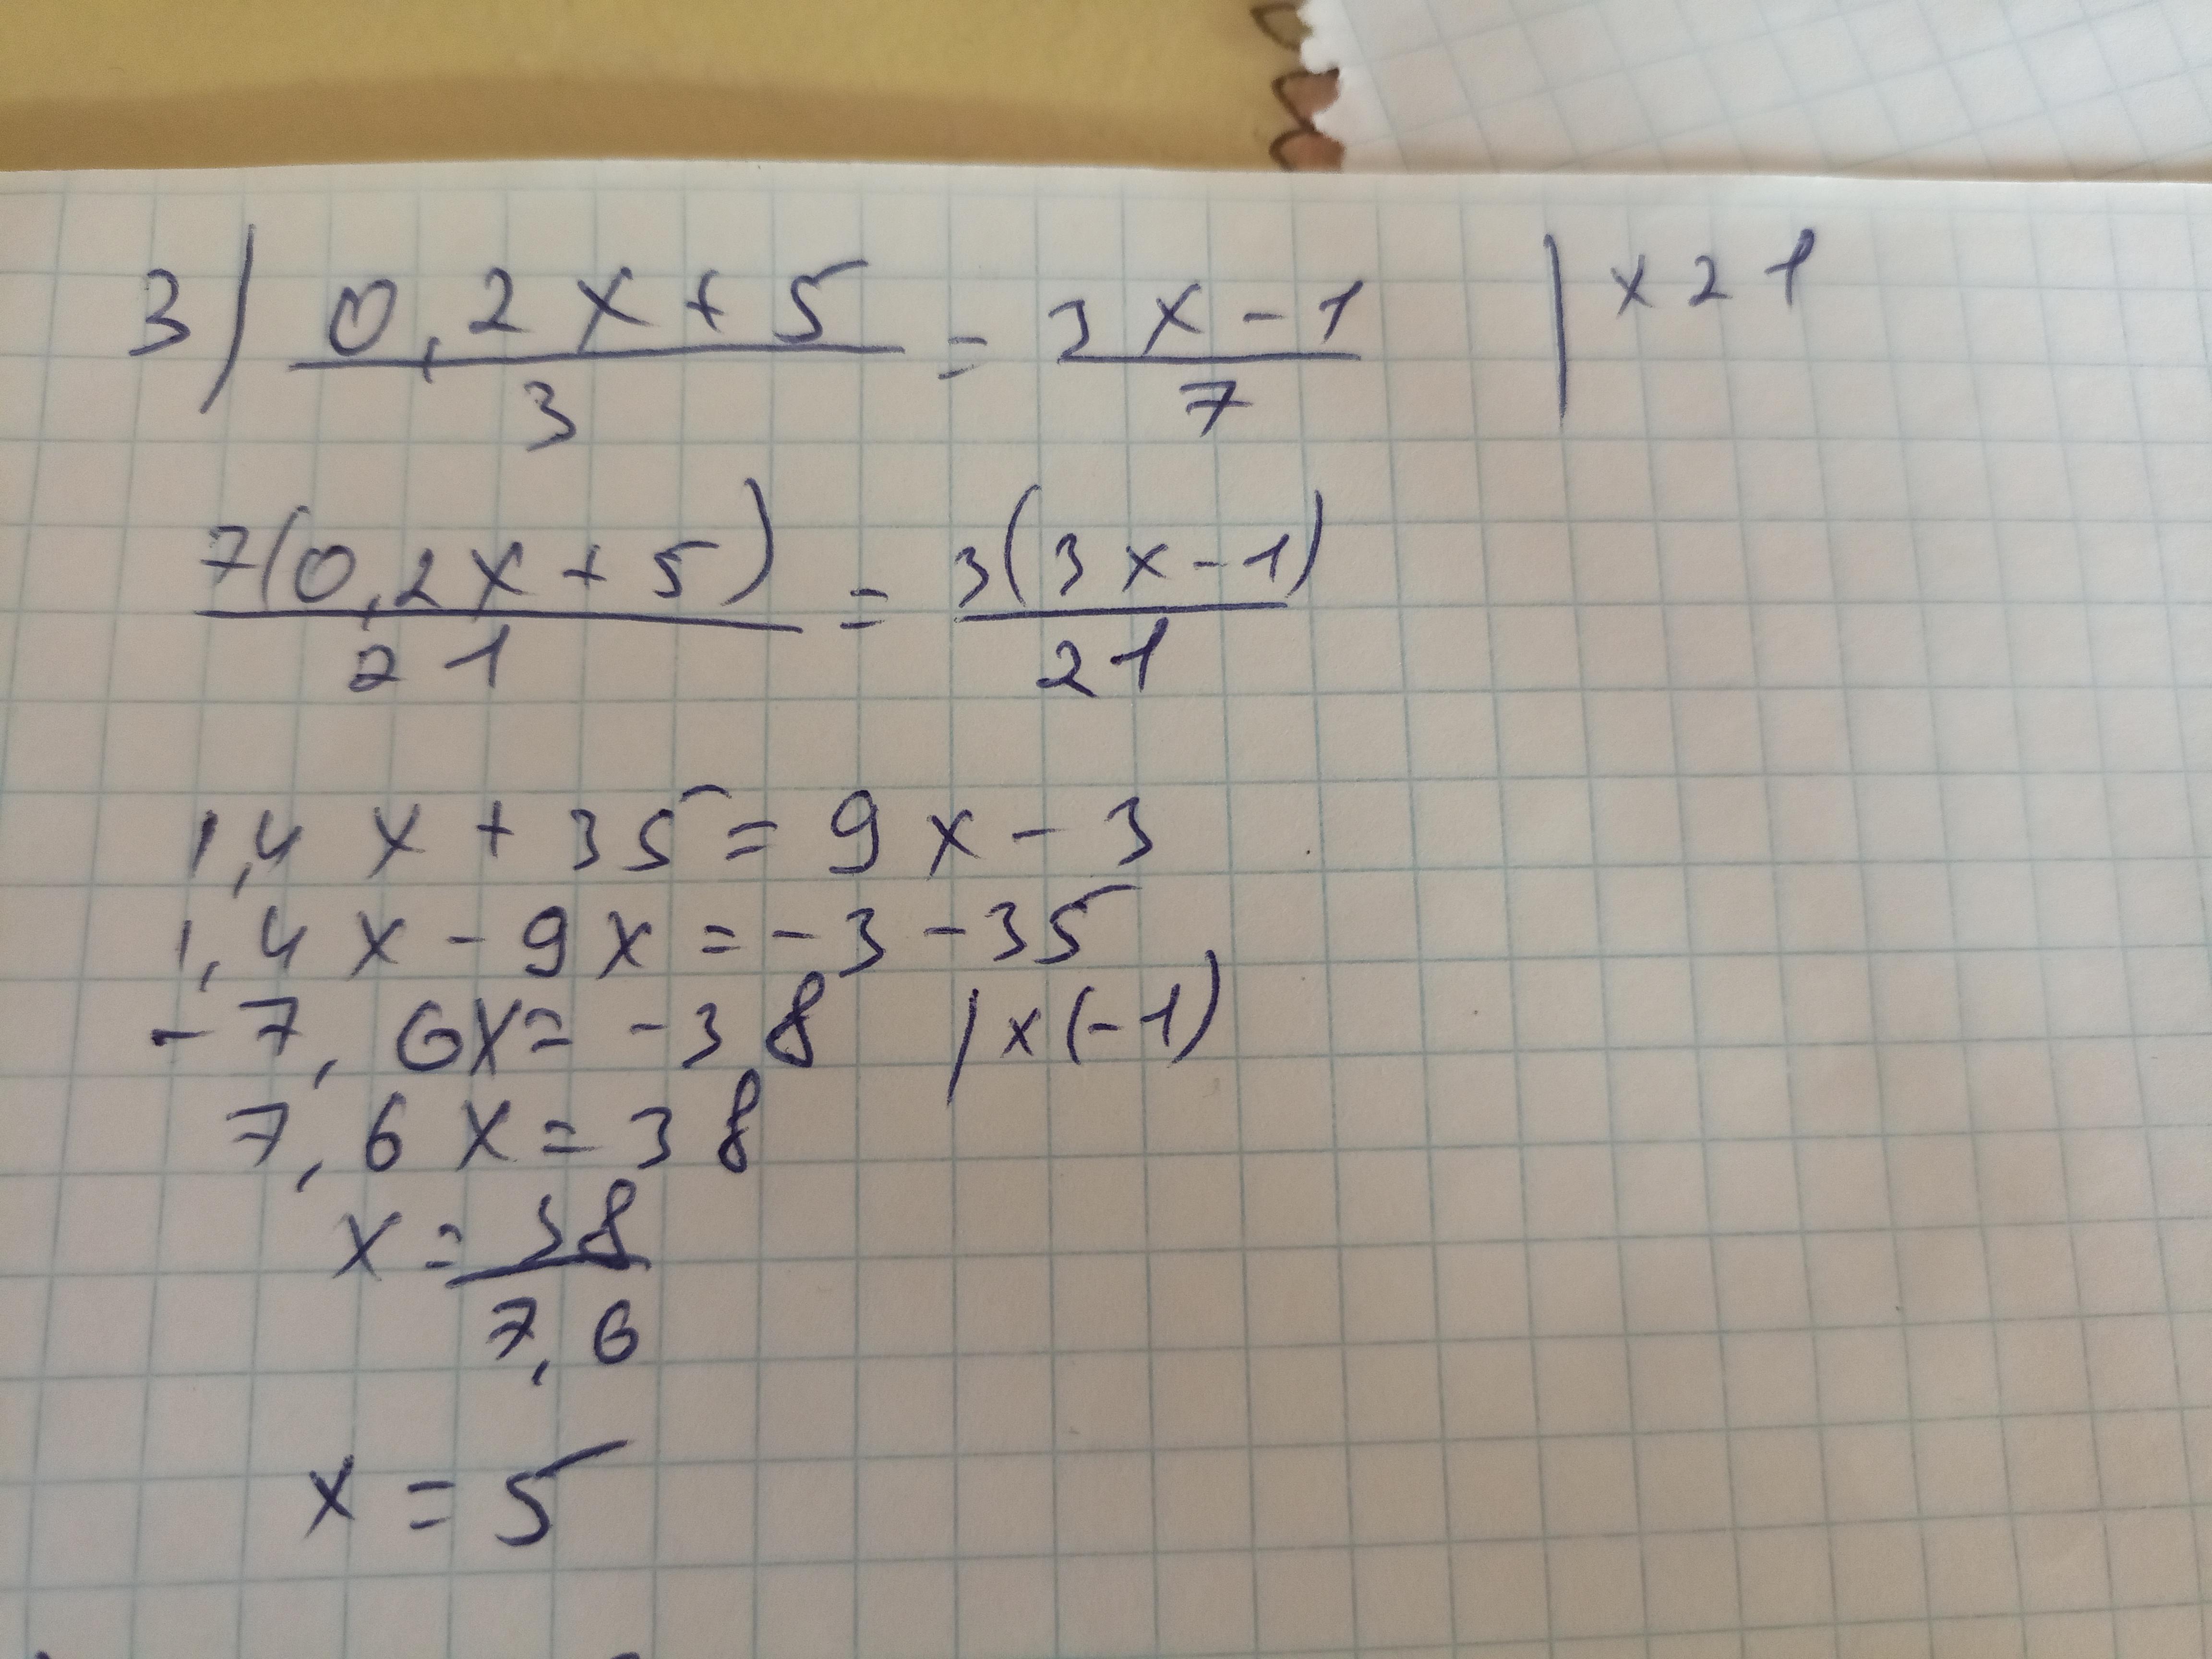 3) (0,2x+5)/3 = (3x-1)/7 | x21
7(0,2x+5)/21 = 3(3x-1)/21
1,4x+35=9x-3
1,4x-9x=-3-35
-7,6x=-38 | x(-1)
7,6x=38
x=38/7,6
x=5